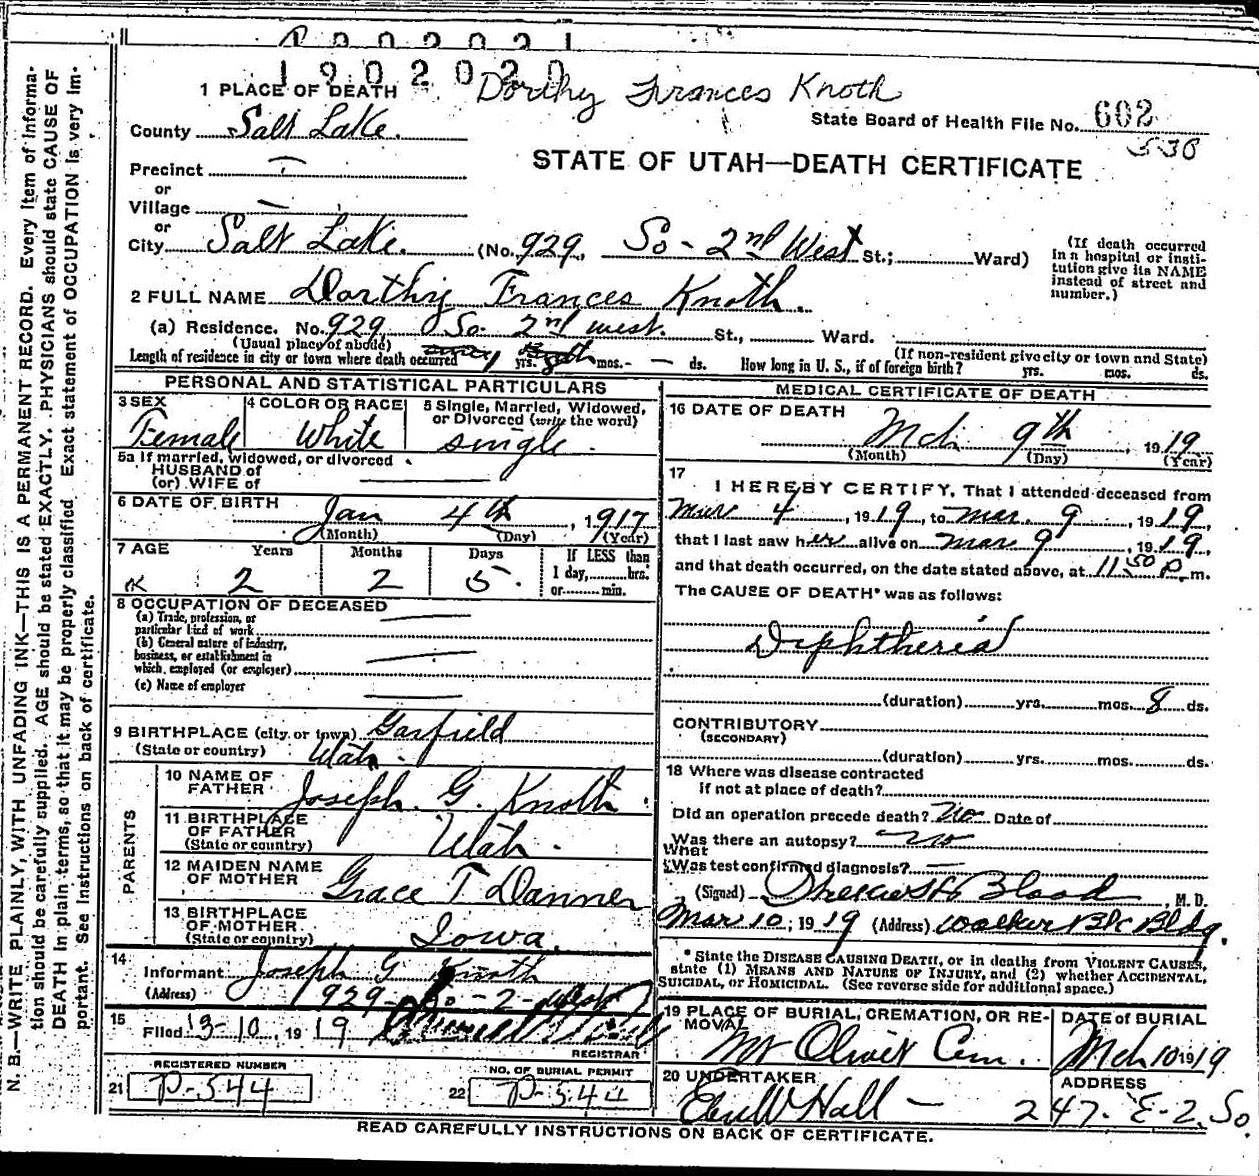 1902020
Dorthy Frances Knoth
1 PLACE OF DEATH
State Board of Health File No. 602
County Salt Lake.
538
STATE OF UTAH—DEATH CERTIFICATE
Precinct —
or
Village —
or
City Salt Lake. (No. 929. So - 2nd West St.; Ward)
(If death occurred in a hospital or institution give its NAME instead of street and number.)
2 FULL NAME Dorthy Frances Knoth.
(a) Residence. No. 929 So. 2nd west. St., Ward.
(Usual place of abode) (If non-resident give city or town and State)
Length of residence in city or town where death occurred yrs. mos. — ds. How long in U. S., if of foreign birth? yrs. mos. ds.
PERSONAL AND STATISTICAL PARTICULARS
3 SEX Female
4 COLOR OR RACE White
5 Single, Married, Widowed, or Divorced (write the word) single.
5a If married, widowed, or divorced
HUSBAND of
(or) WIFE of —
6 DATE OF BIRTH Jan 4th, 1917
(Month) (Day) (Year)
7 AGE Years Months Days If LESS than
2 2 5. 1 day, hrs.
or min.
8 OCCUPATION OF DECEASED
(a) Trade, profession, or
particular kind of work —
(b) General nature of industry,
business, or establishment in
which employed (or employer) —
(c) Name of employer —
9 BIRTHPLACE (city or town) Garfield
(State or country) Utah.
PARENTS
10 NAME OF FATHER Joseph. G. Knoth
11 BIRTHPLACE OF FATHER
(State or country) Utah.
12 MAIDEN NAME OF MOTHER Grace T Danner
13 BIRTHPLACE OF MOTHER
(State or country) Iowa.
14 Informant Joseph G Knoth
(Address) 929- So - 2- West
15 Filed 3-10, 1919
REGISTRAR
REGISTERED NUMBER
21 P-544
NO. OF BURIAL PERMIT
22 P-544
MEDICAL CERTIFICATE OF DEATH
16 DATE OF DEATH
Mch 9th, 1919
(Month) (Day) (Year)
17
I HEREBY CERTIFY, That I attended deceased from
4, 1919, to Mar. 9, 1919,
that I last saw her alive on Mar 9, 1919,
and that death occurred, on the date stated above, at 11 50 P. m.
The CAUSE OF DEATH* was as follows:
Diphtheria
(duration) yrs. mos. 8 ds.
CONTRIBUTORY
(SECONDARY)
(duration) yrs. mos. ds.
18 Where was disease contracted
if not at place of death?
Did an operation precede death? No Date of
Was there an autopsy? No
What
Was test confirmed diagnosis? —
(Signed) Blood, M. D.
Mar 10, 1919 (Address) Walker Bk Bldg.
* State the DISEASE CAUSING DEATH, or in deaths from VIOLENT CAUSES,
state (1) MEANS AND NATURE OF INJURY, and (2) whether ACCIDENTAL,
SUICIDAL, or HOMICIDAL. (See reverse side for additional space.)
19 PLACE OF BURIAL, CREMATION, OR REMOVAL
Mt Olivet Cem.
DATE of BURIAL
Mch 10 1919
20 UNDERTAKER
Eber W Hall —
ADDRESS
247- E-2. So.
READ CAREFULLY INSTRUCTIONS ON BACK OF CERTIFICATE.
N. B.—WRITE PLAINLY, WITH UNFADING INK—THIS IS A PERMANENT RECORD. Every item of information should be carefully supplied. AGE should be stated EXACTLY. PHYSICIANS should state CAUSE OF DEATH in plain terms, so that it may be properly classified. Exact statement of OCCUPATION is very important. See instructions on back of certificate.